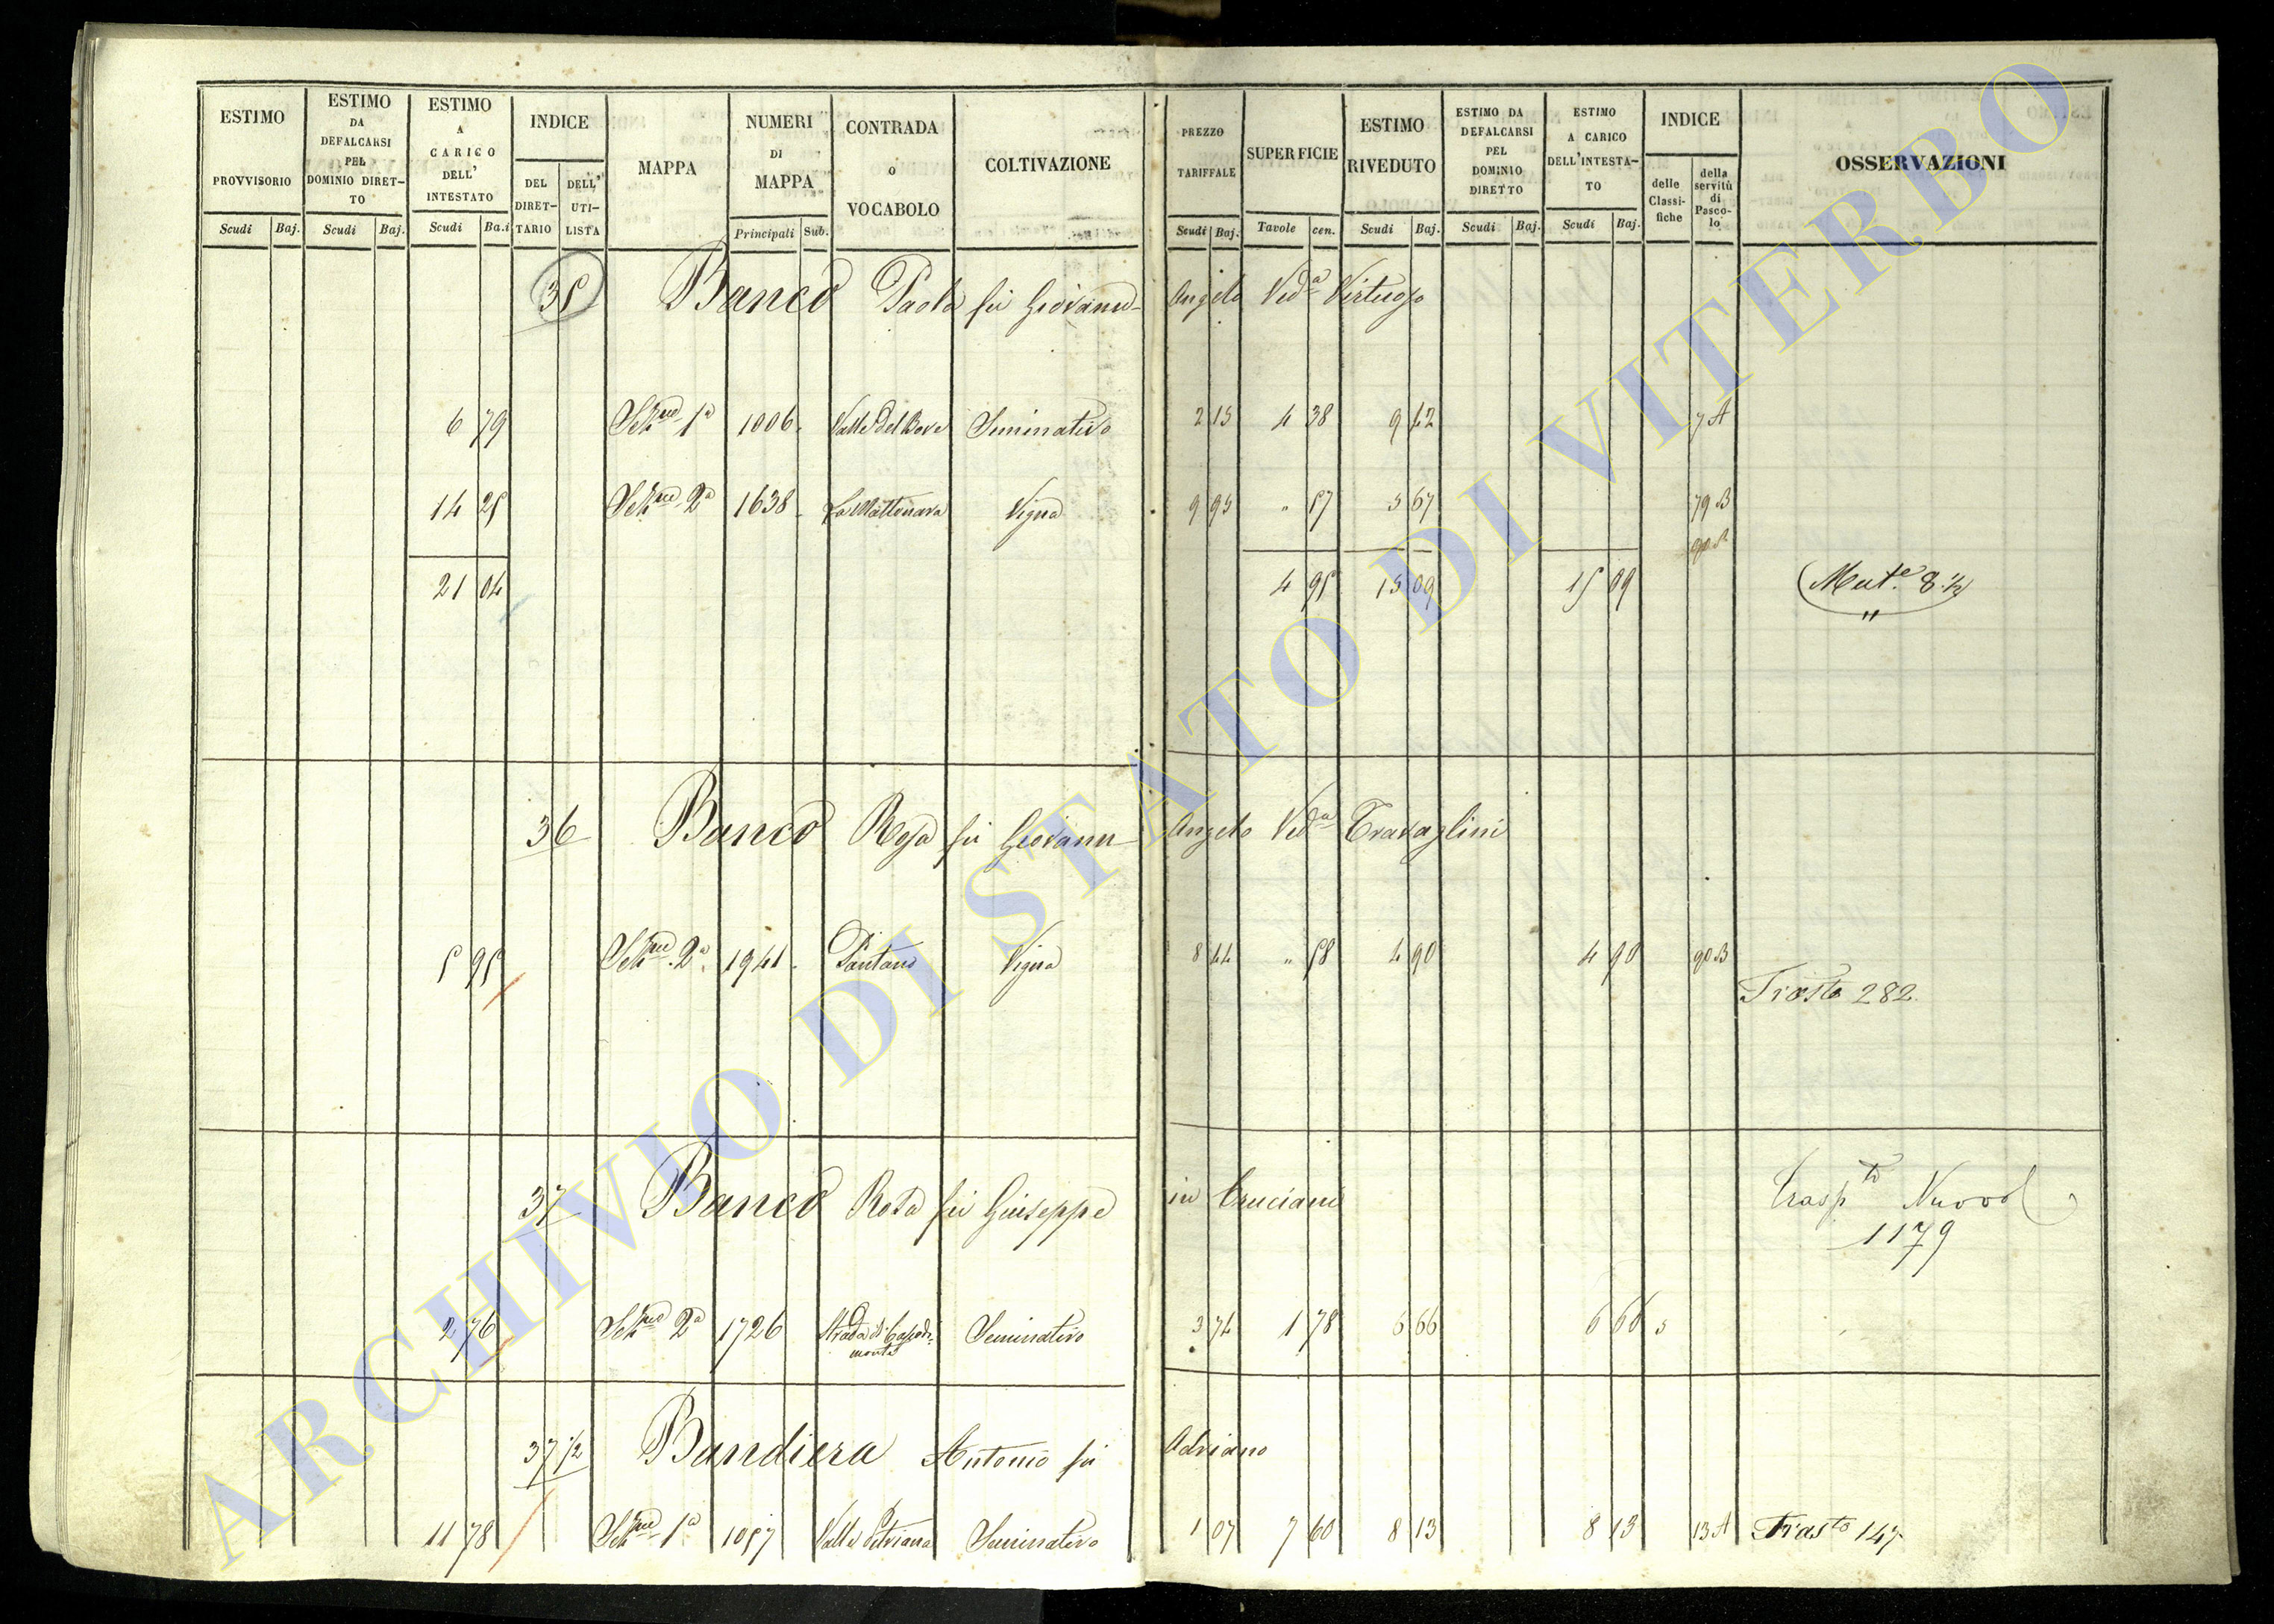 ESTIMO PROVVISORIO Scudi Baj.
ESTIMO DA DEFALCARSI PEL DOMINIO DIRET-TO Scudi Baj.
ESTIMO A CARICO DELL' INTESTATO Scudi Ba.i
INDICE DEL DIRET-TARIO DELL' UTI-LISTA
MAPPA
NUMERI DI MAPPA Principali Sub.
CONTRADA o VOCABOLO
COLTIVAZIONE
PREZZO TARIFFALE Scudi Baj.
SUPERFICIE Tavole cen.
ESTIMO RIVEDUTO Scudi Baj.
ESTIMO DA DEFALCARSI PEL DOMINIO DIRETTO Scudi Baj.
ESTIMO A CARICO DELL'INTESTA-TO Scudi Baj.
INDICE delle Classi-fiche della servitù di Pasco-lo
OSSERVAZIONI
35 Banco Paola fu Giovann- Angelo Ved.a Virtuoso
6 79 Sez.ne 1a 1006 Valle del Bove Seminativo 2 15 4 38 9 42 7 A
14 25 Sez.ne 2a 1638 La Mattonara Vigna 9 95 " 57 5 67 79 B
21 04 4 95 15 09 15 09 Mut.e 8.
36 Banco Rosa fu Giovann- Angelo Ved.a Travaglini
5 95 Sez.ne 2a 1941 Pantano Vigna 8 44 " 58 4 90 4 90 90 B
Trasto 282
37 Banco Rosa fu Giuseppe in Cruciani Trasp.to Nuovo
1179
2 76 Sez.ne 2a 1726 Strada di Capodi-monte Seminativo 3 74 1 78 6 66 6 66 5
37 1/2 Bandiera Antonio fu Adriano
11 78 Sez.ne 1a 1057 Valle Petriana Seminativo 1 07 7 60 8 13 8 13 13 A Trasto 147
ARCHIVIO DI STATO DI VITERBO